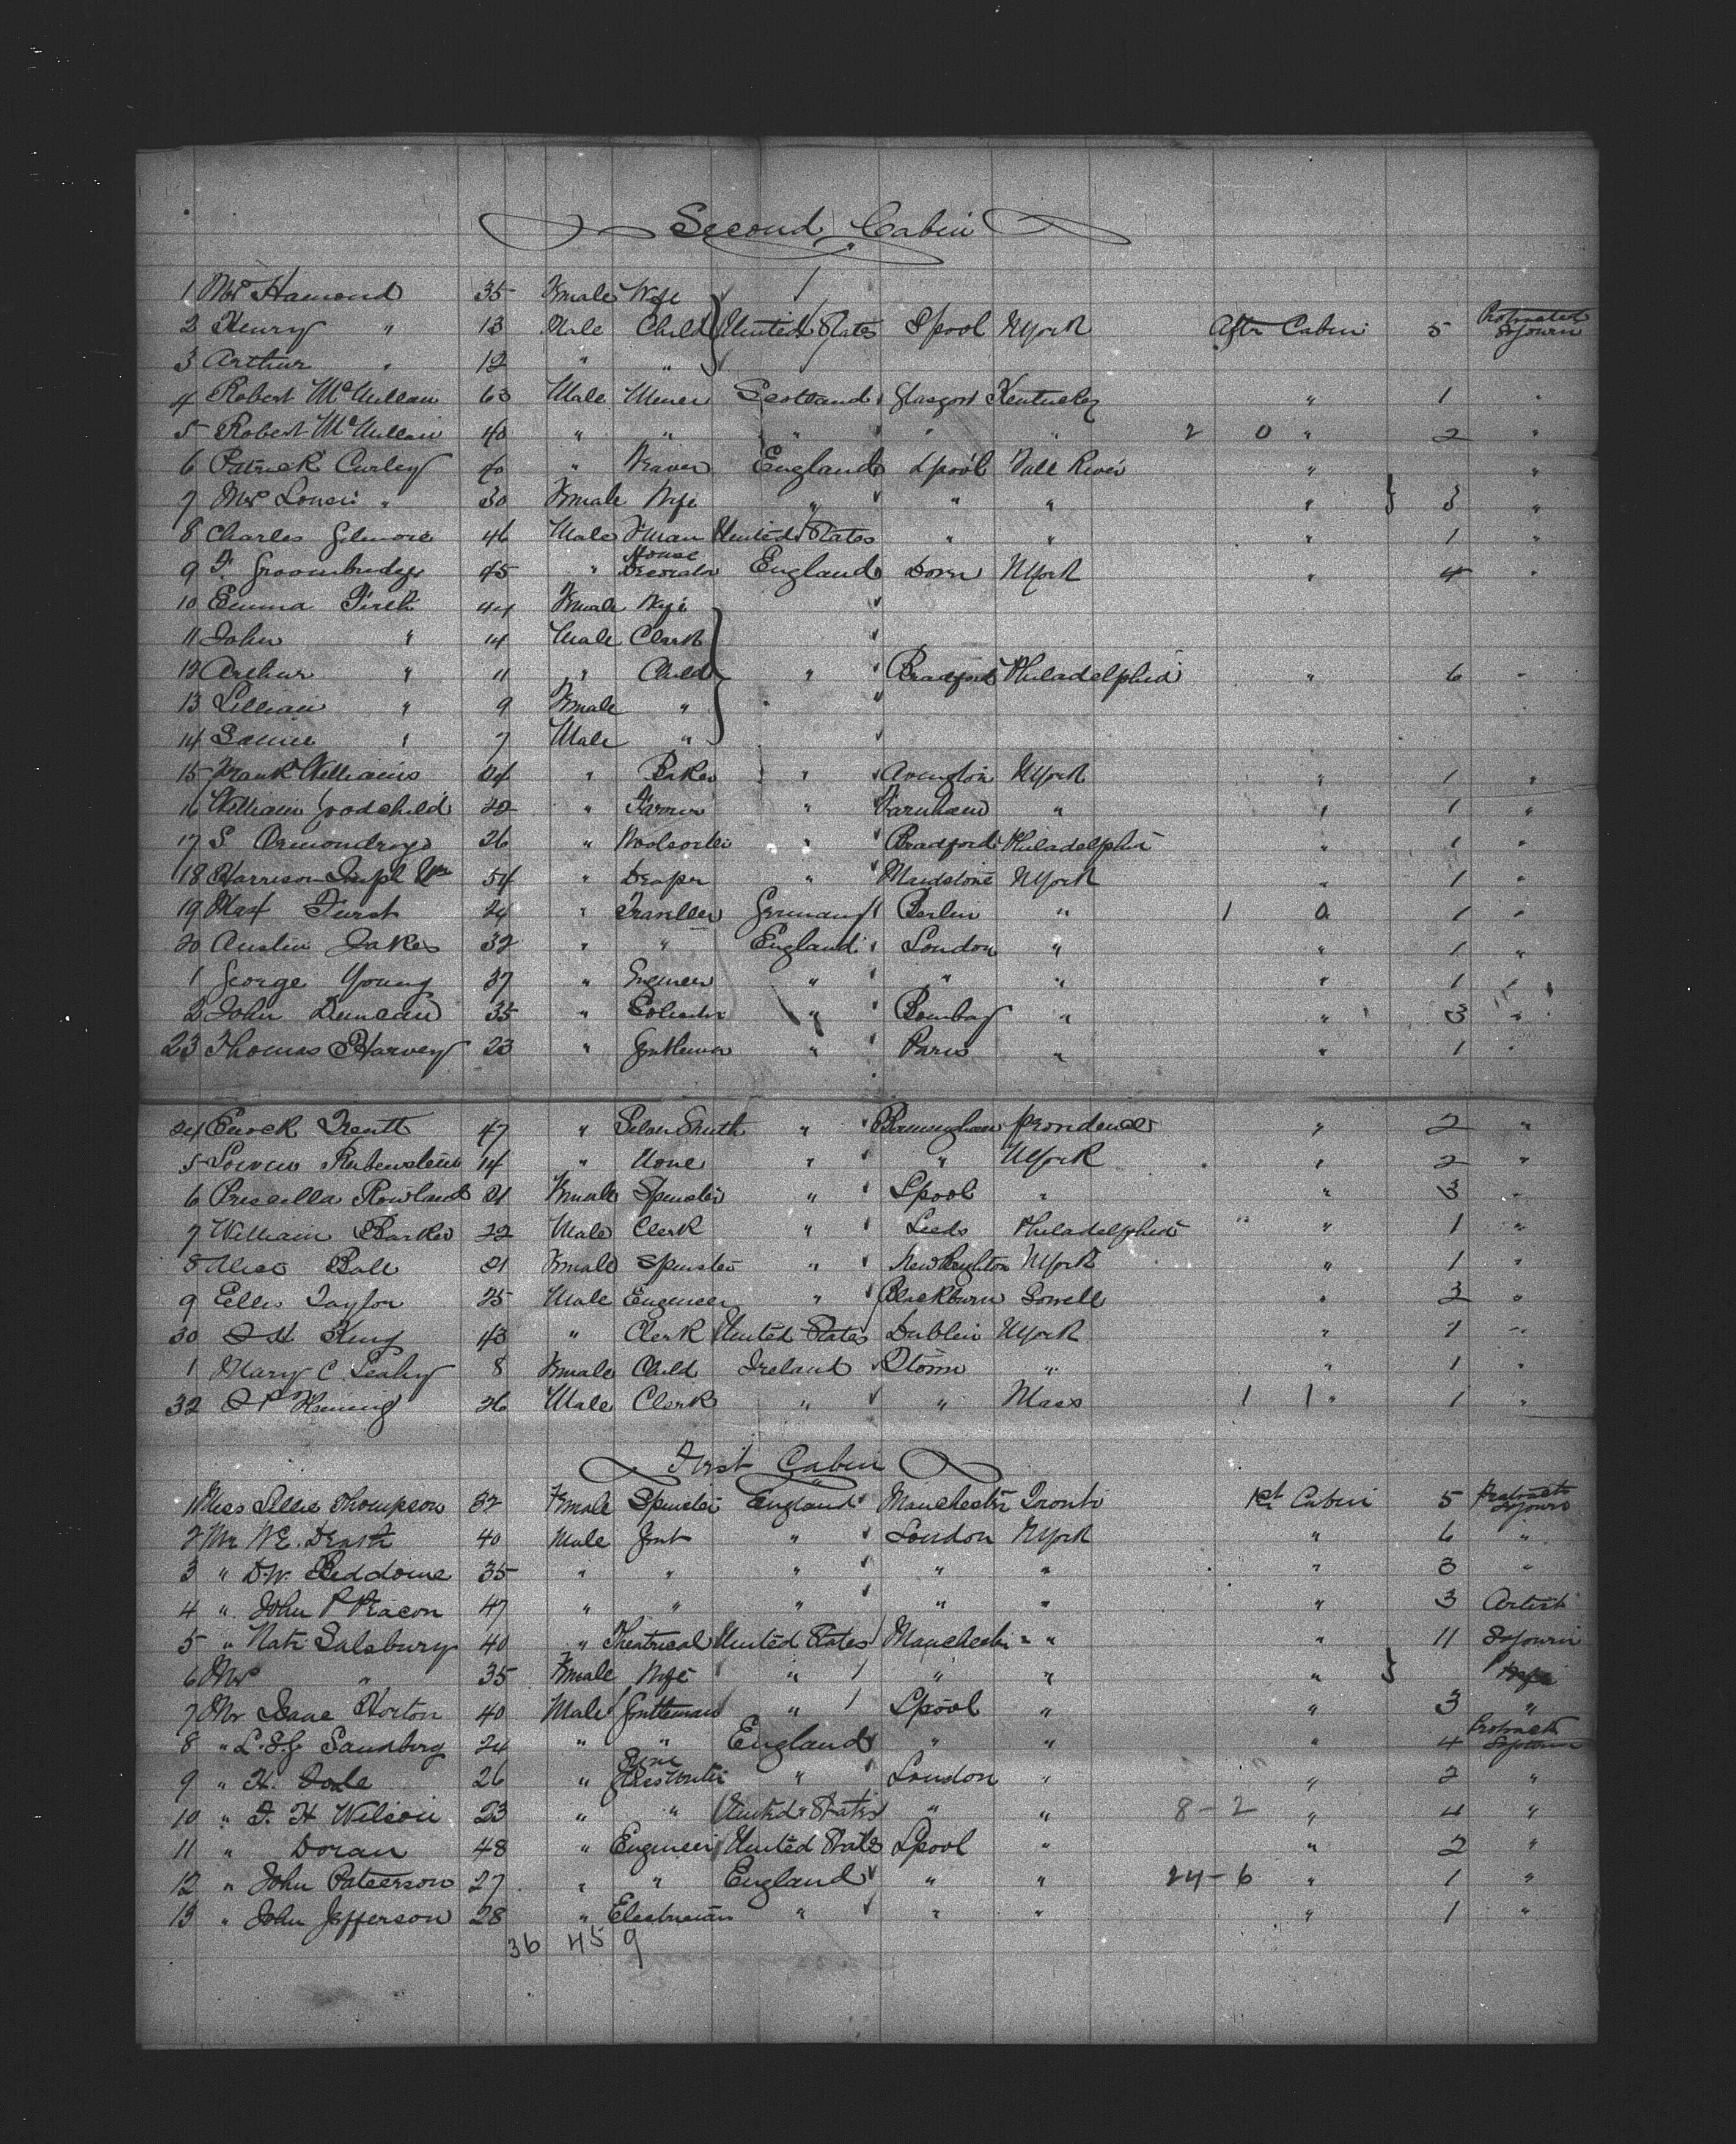 Second Cabin
1 Mrs Hamond 35 Female Wife
2 Henry " 13 Male Child United States Lpool NYork After Cabin 5 Protracted Sojourn
3 Arthur " 12 " "
4 Robert McMillan 63 Male Miner Scotland Glasgow Kentucky " 1 "
5 Robert McMillan 40 " " " " " 2 0 " 2 "
6 Patrick Curley 40 " Weaver England Lpool Fall River " "
7 Mrs " 30 Female Wife " " " " 3 "
8 Charles Gilmore 46 Male United States " " " 1 "
9 F. Groombridge 45 " House Decorator England Dover NYork " 4 "
10 Emma Firth 44 Female Wife
11 John " 14 Male Clerk
12 Arthur " 11 " Child " Bradford Philadelphia " 6 "
13 Lillian " 9 Female "
14 " 7 Male "
15 Frank Williams 24 " Baker " NYork " 1 "
16 William Goodchild 22 " Farmer " Farnham " " 1 "
17 S Ormondroyd 26 " Woolsorter " Bradford Philadelphia " 1 "
18 Harrison Wm 54 " Draper " Maidstone NYork " 1 "
19 Max Furst 24 " Traveller Germany Berlin " 1 0 1 "
20 Austin 32 " " England London " " 1 "
1 George Young 37 " Engineer " " " " 1 "
2 John Duncan 35 " " Bombay " " 3 "
23 Thomas Harvey 23 " Gentleman " Paris " " 1 "
24 Enock Trentt 47 " Silver Smith " Birmingham Providence " 2 "
5 Rubenstein 14 " None " " NYork " 2 "
6 Priscilla Rowland 21 Female Spinster " Lpool " " 3 "
7 William Barker 22 Male Clerk " Leeds Philadelphia " " 1 "
8 Alice Ball 21 Female Spinster " New Brighton NYork " 1 "
9 Ellis Taylor 25 Male Engineer " Blackburn Lowell " 3 "
30 King 43 " Clerk United States Dublin NYork " 1 "
1 Mary C. Leahy 8 Female Child Ireland Qtown " " 1 "
32 26 Male Clerk " " Mass 1 1 " 1 "
First Cabin
1 Miss Lillie Thompson 32 Female Spinster England Manchester Toronto 1st Cabin 5 Protracted Sojourn
2 Mr W.E. 40 Male Gent " London NYork " 6 "
3 " D.W. Beddome 35 " " " " " " 3 "
4 " John P Deacon 47 " " " " " " 3 Artist
5 " Nate Salsbury 40 " Theatrical United States Manchester " " 11 Sojourn
6 Mrs " 35 Female Wife " " " "
7 Mr Isaac Horton 40 Male Gentleman " Lpool " " 3 "
8 " L.S.G Sandberg 24 " " England " " " 4 Protracted Sojourn
9 " H. 26 " " London " " 2 "
10 " F. H Wilson 23 " " United States " " 8 - 2 " 4 "
11 " Doran 48 " Engineer United States Lpool " " 2 "
12 " John Paterson 27 " " England " " 24 - 6 " 1 "
13 " John Jefferson 28 " Electrician " " " " 1 "
36 45 9